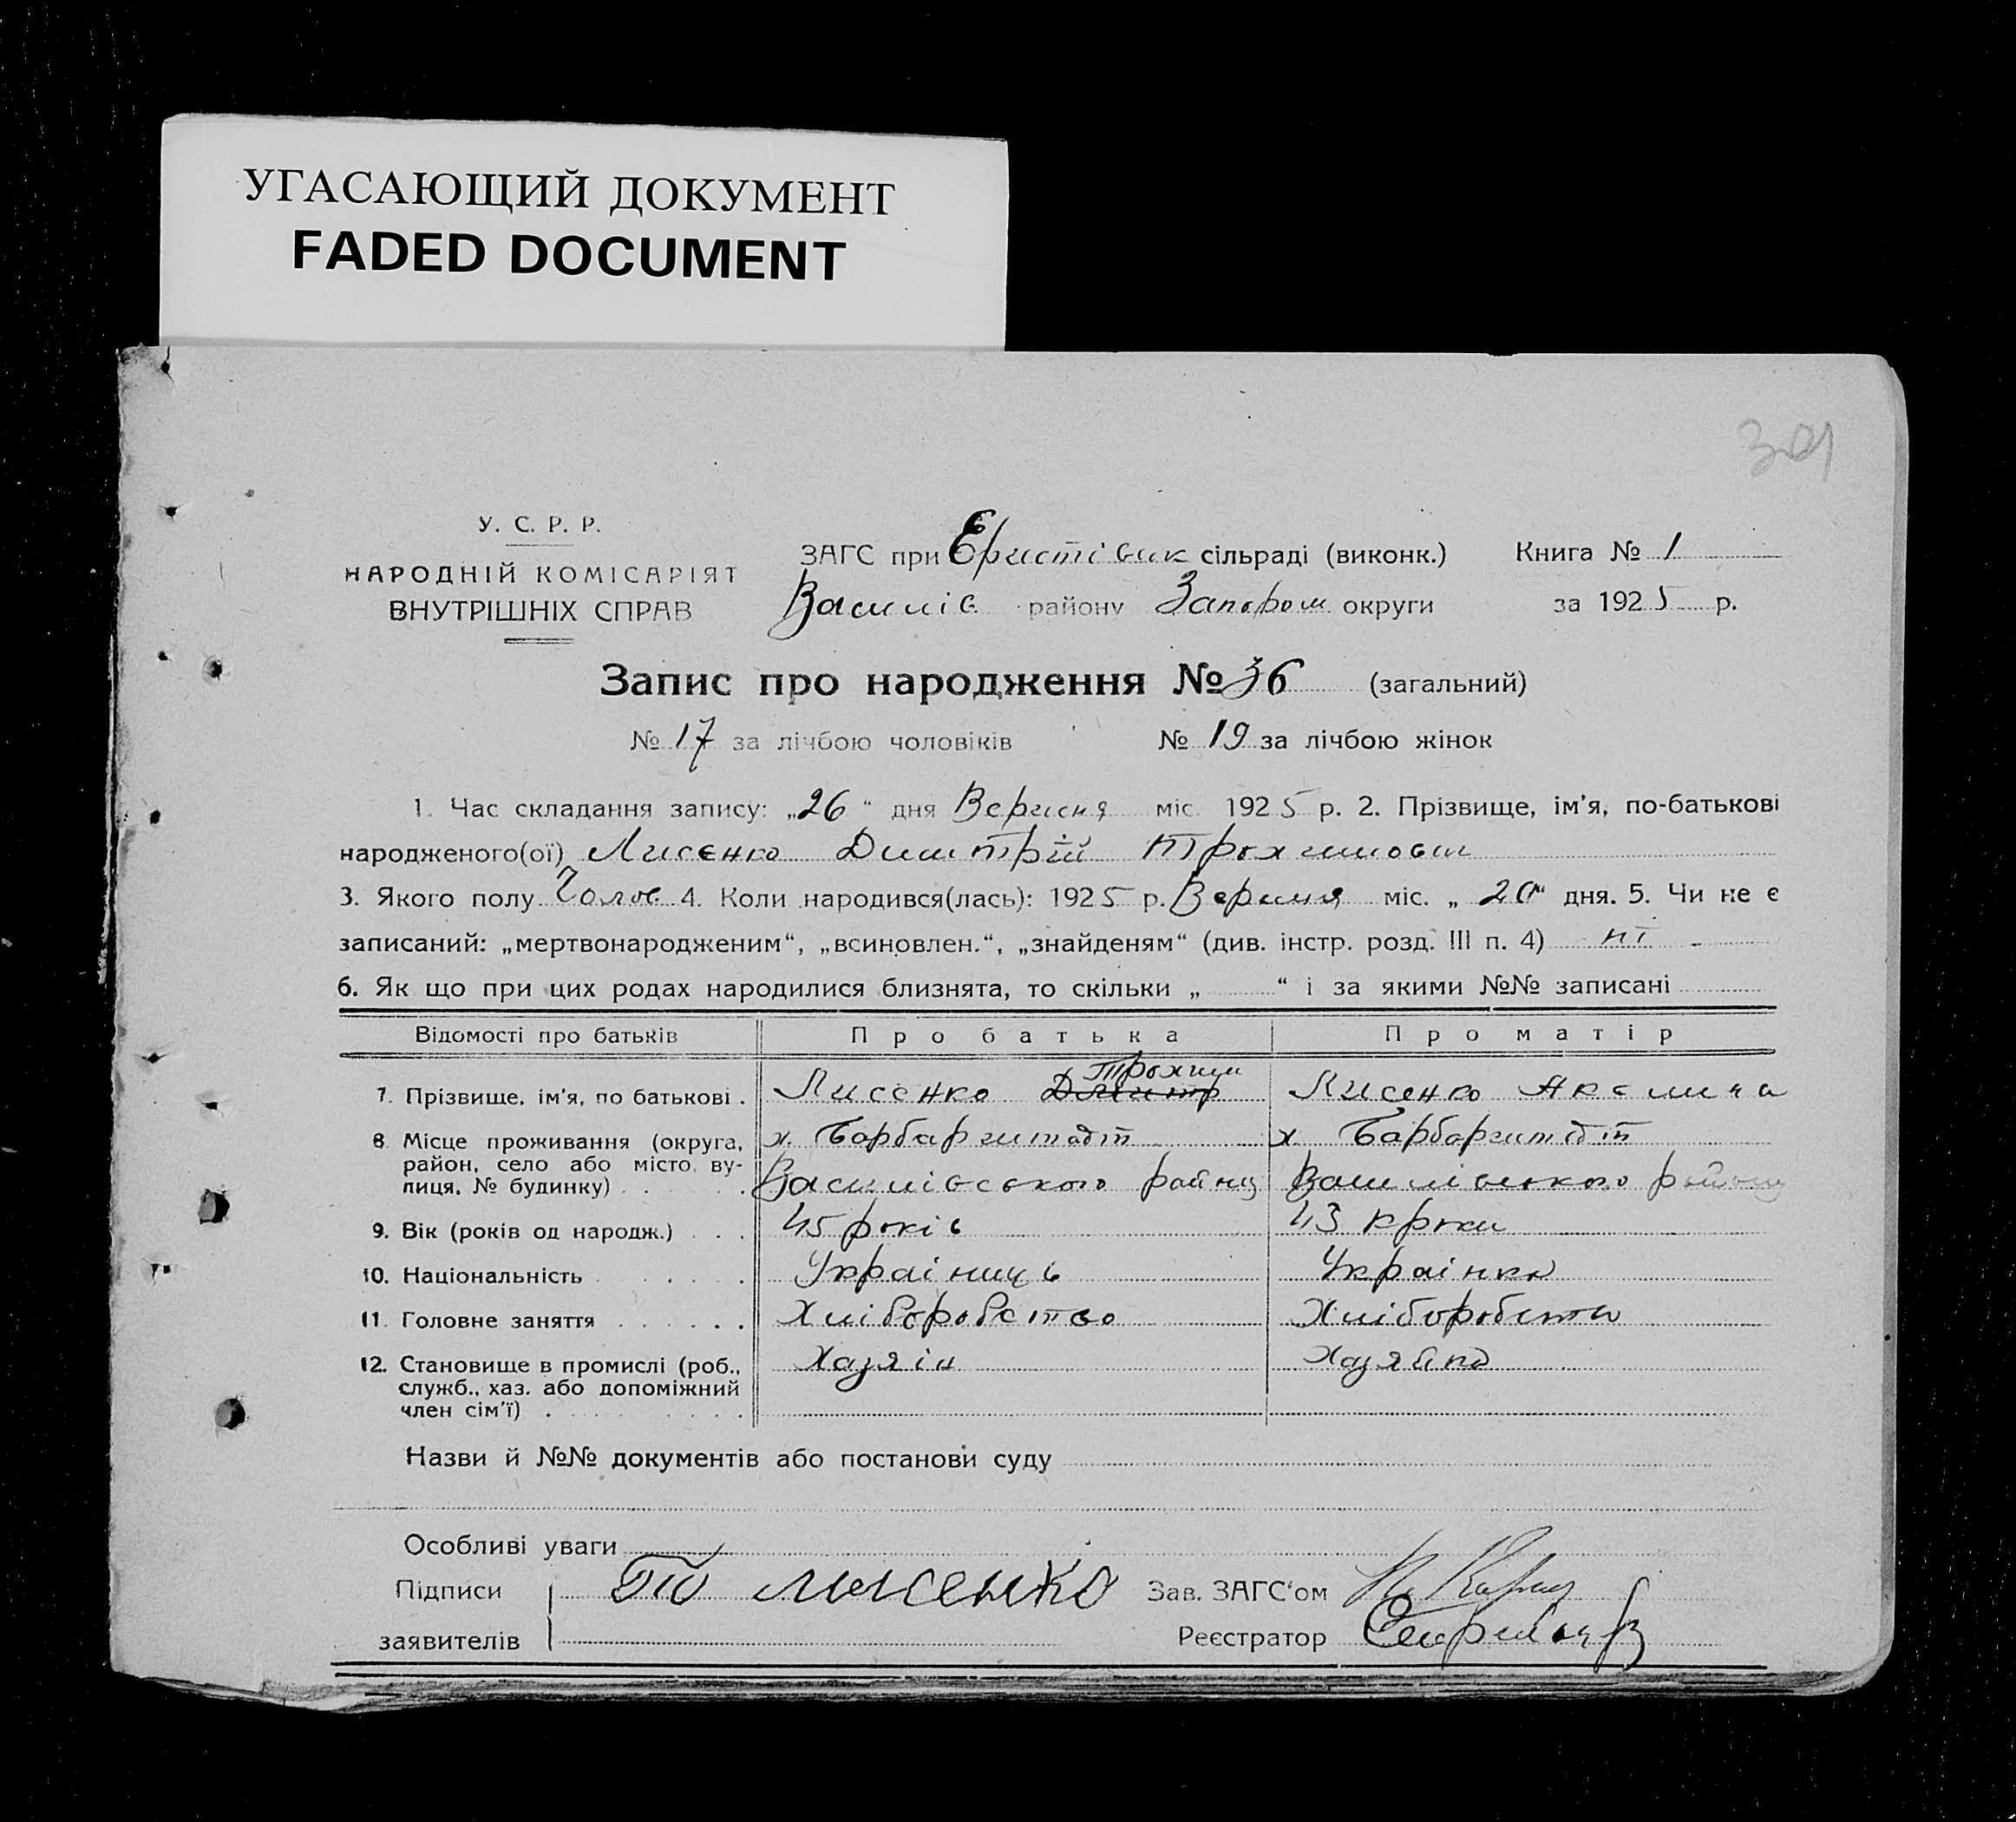 УГАСАЮЩИЙ ДОКУМЕНТ
FADED DOCUMENT
301
У. С. Р. Р.
НАРОДНІЙ КОМІСАРІЯТ
ВНУТРІШНІХ СПРАВ
ЗАГС при Єристівск сільраді (виконк.) Книга № 1
Василів району Запорож округи за 1925 р.
Запис про народження № 36 (загальний)
№ 17 за лічбою чоловіків № 19 за лічбою жінок
1. Час складання запису: „26“ дня Вересня міс. 1925 р. 2. Прізвище, ім'я, по-батькові
народженого(ої) Лисенко Димитрій Трохимович
3. Якого полу Чолов 4. Коли народився(лась): 1925 р. Вересня міс. „20“ дня. 5. Чи не є
записаний: „мертвонародженим“, „всиновлен.“, „знайденям“ (див. інстр. розд. III п. 4) ні
6. Як що при цих родах народилися близнята, то скільки „ “ і за якими №№ записані
Відомості про батьків Про батька Про матір
Трохим
7. Прізвище, ім'я, по батькові . Лисенко Дмитр Лисенко Аксинина
8. Місце проживання (округа, х. Барбарштадт х Барбарштадт
район, село або місто, ву-
лиця, № будинку) Василівського району Василівського району
9. Вік (років од народж.) . . . 45 років 43 роки
10. Національність Україниць Українка
11. Головне заняття Хліборобство Хліборобство
12. Становище в промислі (роб., Хазяін Хазяйка
служб., хаз. або допоміжний
член сім'ї)
Назви й №№ документів або постанови суду
Особливі уваги
Підписи Лисенко Зав. ЗАГС'ом
заявителів Реєстратор